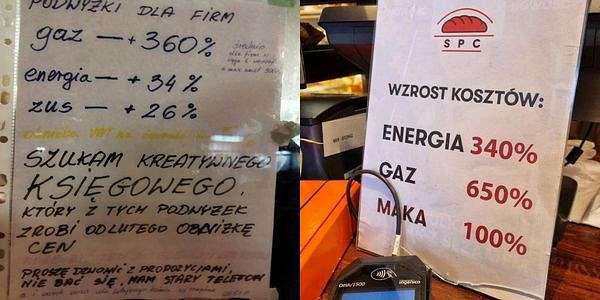 PODWYŻKI DLA FIRM
gaz — + 360%
energia — + 34%
ZUS — + 26%
SZUKAM KREATYWNEGO
KSIĘGOWEGO,
KTÓRY Z TYCH PODWYŻEK
ZROBI OD LUTEGO OBNIŻKĘ
CEN
PROSZĘ DZWONIĆ Z PROPOZYCJAMI,
NIE BAĆ SIĘ, MAM STARY TELEFON
SPC
WZROST KOSZTÓW:
ENERGIA 340%
GAZ 650%
MĄKA 100%
ingenico